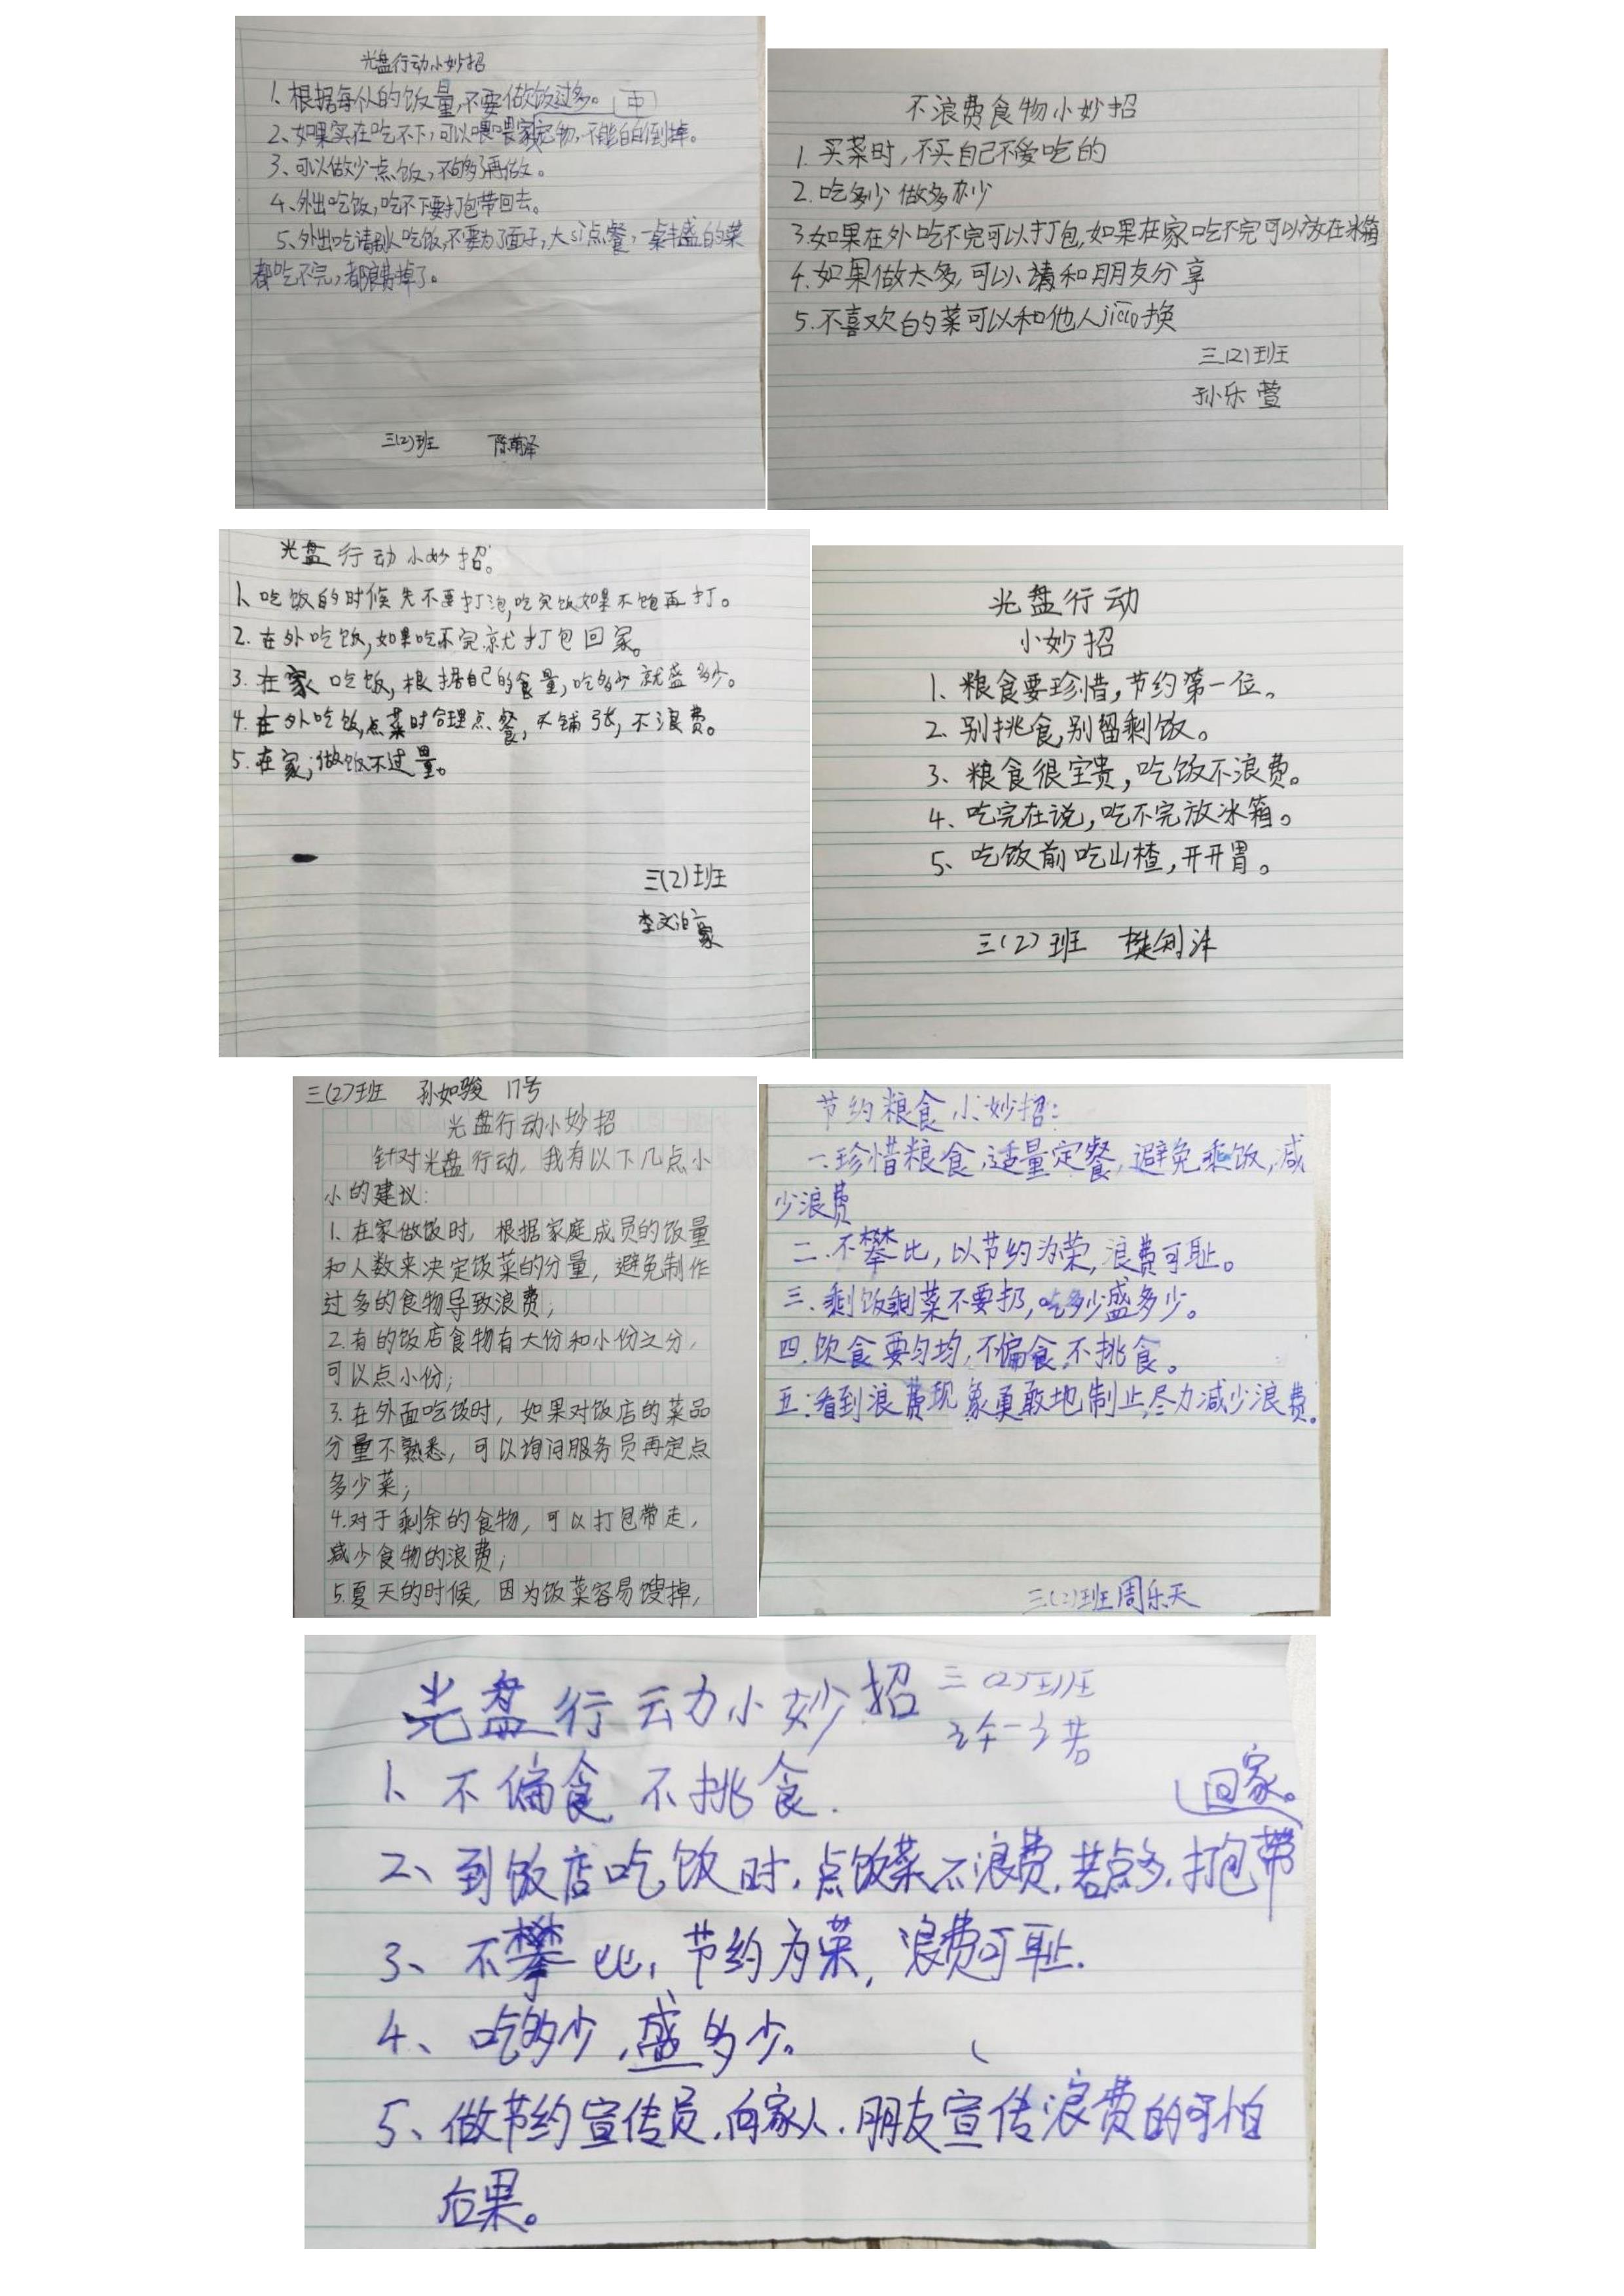 光盘行动小妙招
1、根据每个人的饭量,不要做饭过多。
2、如果实在吃不下,可以喂喂家中宠物,不能白白倒掉。
3、可以做少点饭,不够了再做。
4、外出吃饭,吃不下要打包带回去。
5、外出吃请别人吃饭,不要为了面子,大sì点餐,一桌丰盛的菜
都吃不完,都浪费掉了。
三(2)班
不浪费食物小妙招
1.买菜时,不买自己不爱吃的
2.吃多少做多少
3.如果在外吃不完可以打包,如果在家吃不完可以放在冰箱
4.如果做太多,可以请和朋友分享
5.不喜欢的菜可以和他人jiāo换
三(2)班
孙乐萱
光盘行动小妙招。
1、吃饭的时候先不要打泡,吃完饭如果不饱再打。
2.在外吃饭,如果吃不完就打包回家。
3.在家吃饭,根据自己的食量,吃多少就盛多少。
4.在外吃饭,点菜时合理点餐,不铺张,不浪费。
5.在家,做饭不过量。
三(2)班
李文泊
光盘行动
小妙招
1、粮食要珍惜,节约第一位。
2、别挑食,别留剩饭。
3、粮食很宝贵,吃饭不浪费。
4、吃完在说,吃不完放冰箱。
5、吃饭前吃山楂,开开胃。
三(2)班 樊
三(2)班 孙如骏 17号
光盘行动小妙招
针对光盘行动,我有以下几点小
小的建议:
1.在家做饭时,根据家庭成员的饭量
和人数来决定饭菜的分量,避免制作
过多的食物导致浪费;
2.有的饭店食物有大份和小份之分,
可以点小份;
3.在外面吃饭时,如果对饭店的菜品
分量不熟悉,可以询问服务员再定点
多少菜;
4.对于剩余的食物,可以打包带走,
减少食物的浪费;
5.夏天的时候,因为饭菜容易馊掉,
节约粮食小妙招:
一.珍惜粮食,适量定餐,避免剩饭,减
少浪费
二.不攀比,以节约为荣,浪费可耻。
三.剩饭剩菜不要扔,吃多少盛多少。
四.饮食要匀均,不偏食,不挑食。
五.看到浪费现象勇敢地制止,尽力减少浪费。
三(2)班周乐天
光盘行动小妙招
三(2)班
1、不偏食 不挑食.
2、到饭店吃饭时,点饭菜不浪费,若点多,打包带
回家。
3、不攀比,节约为荣,浪费可耻.
4、吃多少,盛多少。
5、做节约宣传员,向家人.朋友宣传浪费的可怕
后果。